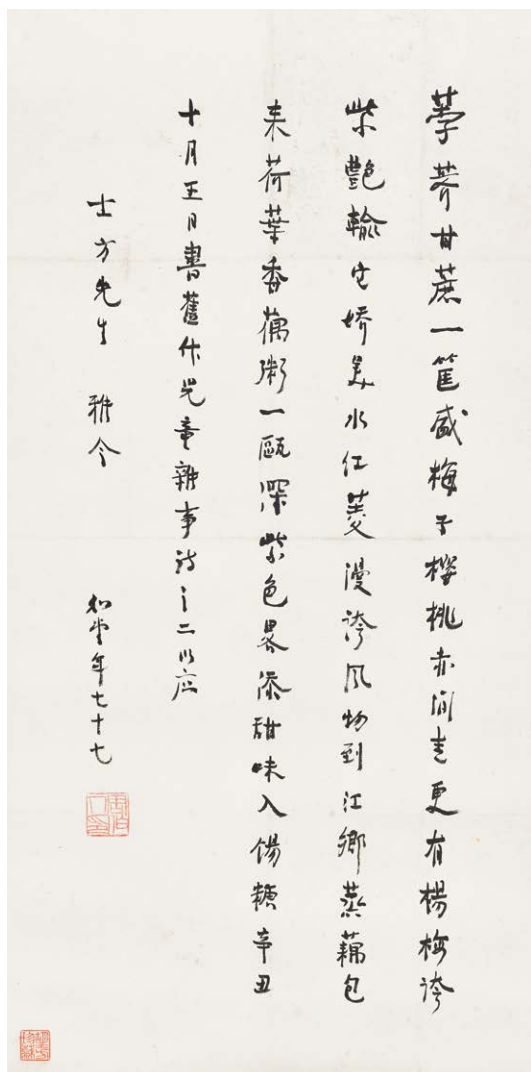 荸荠甘蔗一筐盛梅子樱桃赤间青更有杨梅誇
紫艳输它娇美水红菱漫誇风物到江乡蒸藕包
来荷葉香藕粥一瓯深紫色略添甜味入饧糖辛丑
十月五日書舊作兒童雜事詩之二以应
士方先生 雅令
知堂年七十七
周作人印